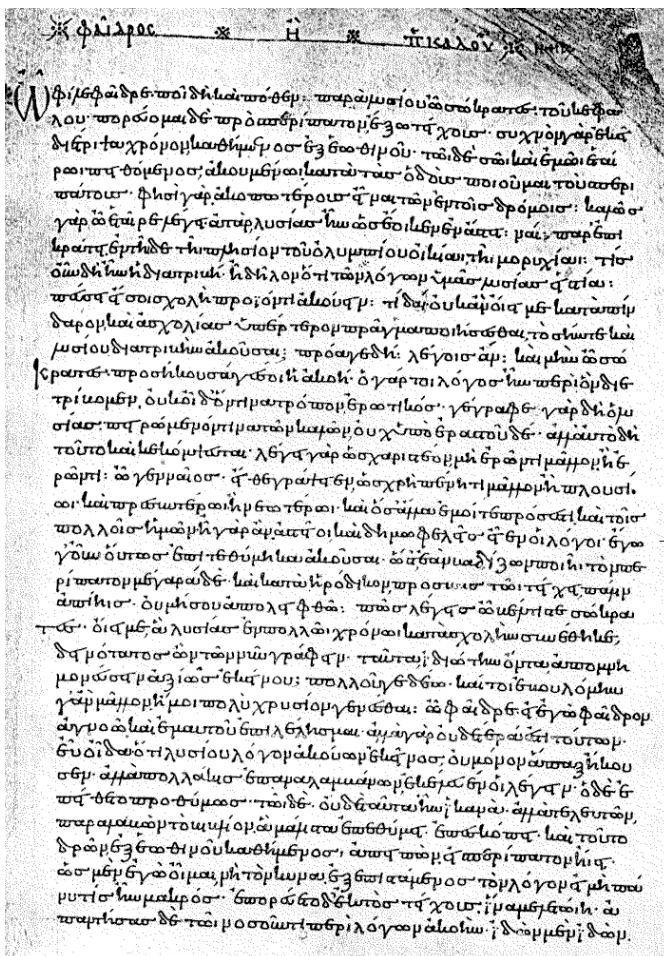 φαῖδρος ἢ περὶ καλοῦ ἠθικ
Ὦ φίλε φαῖδρε ποῖ δὴ καὶ πόθεν: παρὰ λυσίου ὦ σώκρατες· τοῦ κεφά
λου· πορεύομαι δὲ πρὸς περίπατον ἔξω τείχους· συχνὸν γὰρ ἐκεῖ
διέτριψα χρόνον καθήμενος ἐξ ἑωθινοῦ· τῶι δὲ σῶι καὶ ἐμῶι ἑταί
ρωι πειθόμενος ἀκουμενῶι κατὰ τὰς ὁδοὺς ποιοῦμαι τοὺς περι
πάτους· φησὶ γὰρ ἀκοπωτέρους εἶναι τῶν ἐν τοῖς δρόμοις: καλῶς
γὰρ ὦ ἑταῖρε λέγει· ἀτὰρ λυσίας ἦν ὡς ἔοικεν ἐν ἄστει: ναί· παρ' ἐπι
κράτει ἐν τῆιδε τῆι πλησίον τοῦ ὀλυμπίου οἰκίαι τῆι μορυχίαι: τίς
οὖν δὴ ἦν ἡ διατριβή· ἢ δῆλον ὅτι τῶν λόγων ὑμᾶς λυσίας εἱστία:
πεύσει εἴ σοι σχολὴ προϊόντι ἀκούειν: τί δαί; οὐκ ἂν οἴει με κατὰ πίν
δαρον καὶ ἀσχολίας ὑπέρτερον πρᾶγμα ποιήσεσθαι, τὸ σήν τε καὶ
λυσίου διατριβὴν ἀκοῦσαι; πρόαγε δή: λέγοις ἄν: καὶ μὴν ὦ σώ
κρατες προσήκουσά γέ σοι ἡ ἀκοή· ὁ γάρ τοι λόγος ἦν περὶ ὃν διε
τρίβομεν, οὐκ οἶδ' ὅντινα τρόπον ἐρωτικός· γέγραφε γὰρ δὴ ὁ λυ
σίας πειρώμενόν τινα τῶν καλῶν, οὐχ ὑπ' ἐραστοῦ δέ· ἀλλ' αὐτὸ δὴ
τοῦτο καὶ κεκόμψευται· λέγει γὰρ ὡς χαριστέον μὴ ἐρῶντι μᾶλλον ἢ ἐ
ρῶντι: ὢ γενναῖος· εἴθε γράψειεν ὡς χρὴ πένητι μᾶλλον ἢ πλουσί
ωι· καὶ πρεσβυτέρωι ἢ νεωτέρωι· καὶ ὅσα ἄλλα ἐμοί τε πρόσεστι καὶ τοῖς
πολλοῖς ἡμῶν· ἦ γὰρ ἂν ἀστεῖοι καὶ δημωφελεῖς εἶεν οἱ λόγοι· ἔγω
γ' οὖν οὕτως ἐπιτεθύμηκα ἀκοῦσαι· ὥστ' ἐὰν βαδίζων ποιῆι τὸν πε
ρίπατον μέγαράδε· καὶ κατὰ ἡρόδικον προσβὰς τῶι τείχει πάλιν
ἀπίηις· οὐ μή σου ἀπολειφθῶ: πῶς λέγεις ὦ βέλτιστε σώκρα
τες· οἴει με, ἃ λυσίας ἐν πολλῶι χρόνωι κατὰ σχολὴν συνέθηκε,
δεινότατος ὢν τῶν νῦν γράφειν· ταῦτα ἰδιώτην ὄντα ἀπομνη
μονεύσειν ἀξίως ἐκείνου; πολλοῦ γε δέω· καίτοι ἐβουλόμην
γ' ἂν μᾶλλον ἤ μοι πολὺ χρυσίον γενέσθαι: ὦ φαῖδρε· εἰ ἐγὼ φαῖδρον
ἀγνοῶ καὶ ἐμαυτοῦ ἐπιλέλησμαι· ἀλλὰ γὰρ οὐδέτερά ἐστι τούτων·
εὖ οἶδα ὅτι λυσίου λόγον ἀκούων ἐκεῖνος, οὐ μόνον ἅπαξ ἤκου
σεν· ἀλλὰ πολλάκις ἐπαναλαμβάνων ἐκέλευέν οἱ λέγειν· ὁ δὲ ἐ
πείθετο προθύμως· τῶι δὲ οὐδὲ ταῦτα ἦν ἱκανά· ἀλλὰ τελευτῶν,
παραλαβὼν τὸ βιβλίον, ἃ μάλιστα ἐπεθύμει ἐπεσκόπει· καὶ τοῦτο
δρῶν ἐξ ἑωθινοῦ καθήμενος, ἀπειπὼν εἰς περίπατον ἤιει·
ὡς μὲν ἐγὼ οἶμαι, νὴ τὸν κύνα, ἐξεπιστάμενος τὸν λόγον εἰ μὴ πάν
υ τις ἦν μακρός· ἐπορεύετο δ' ἐκτὸς τείχους ἵνα μελετώιη· ἀ
παντήσας δὲ τῶι νοσοῦντι περὶ λόγων ἀκοήν· ἰδὼν μὲν ἰδών.